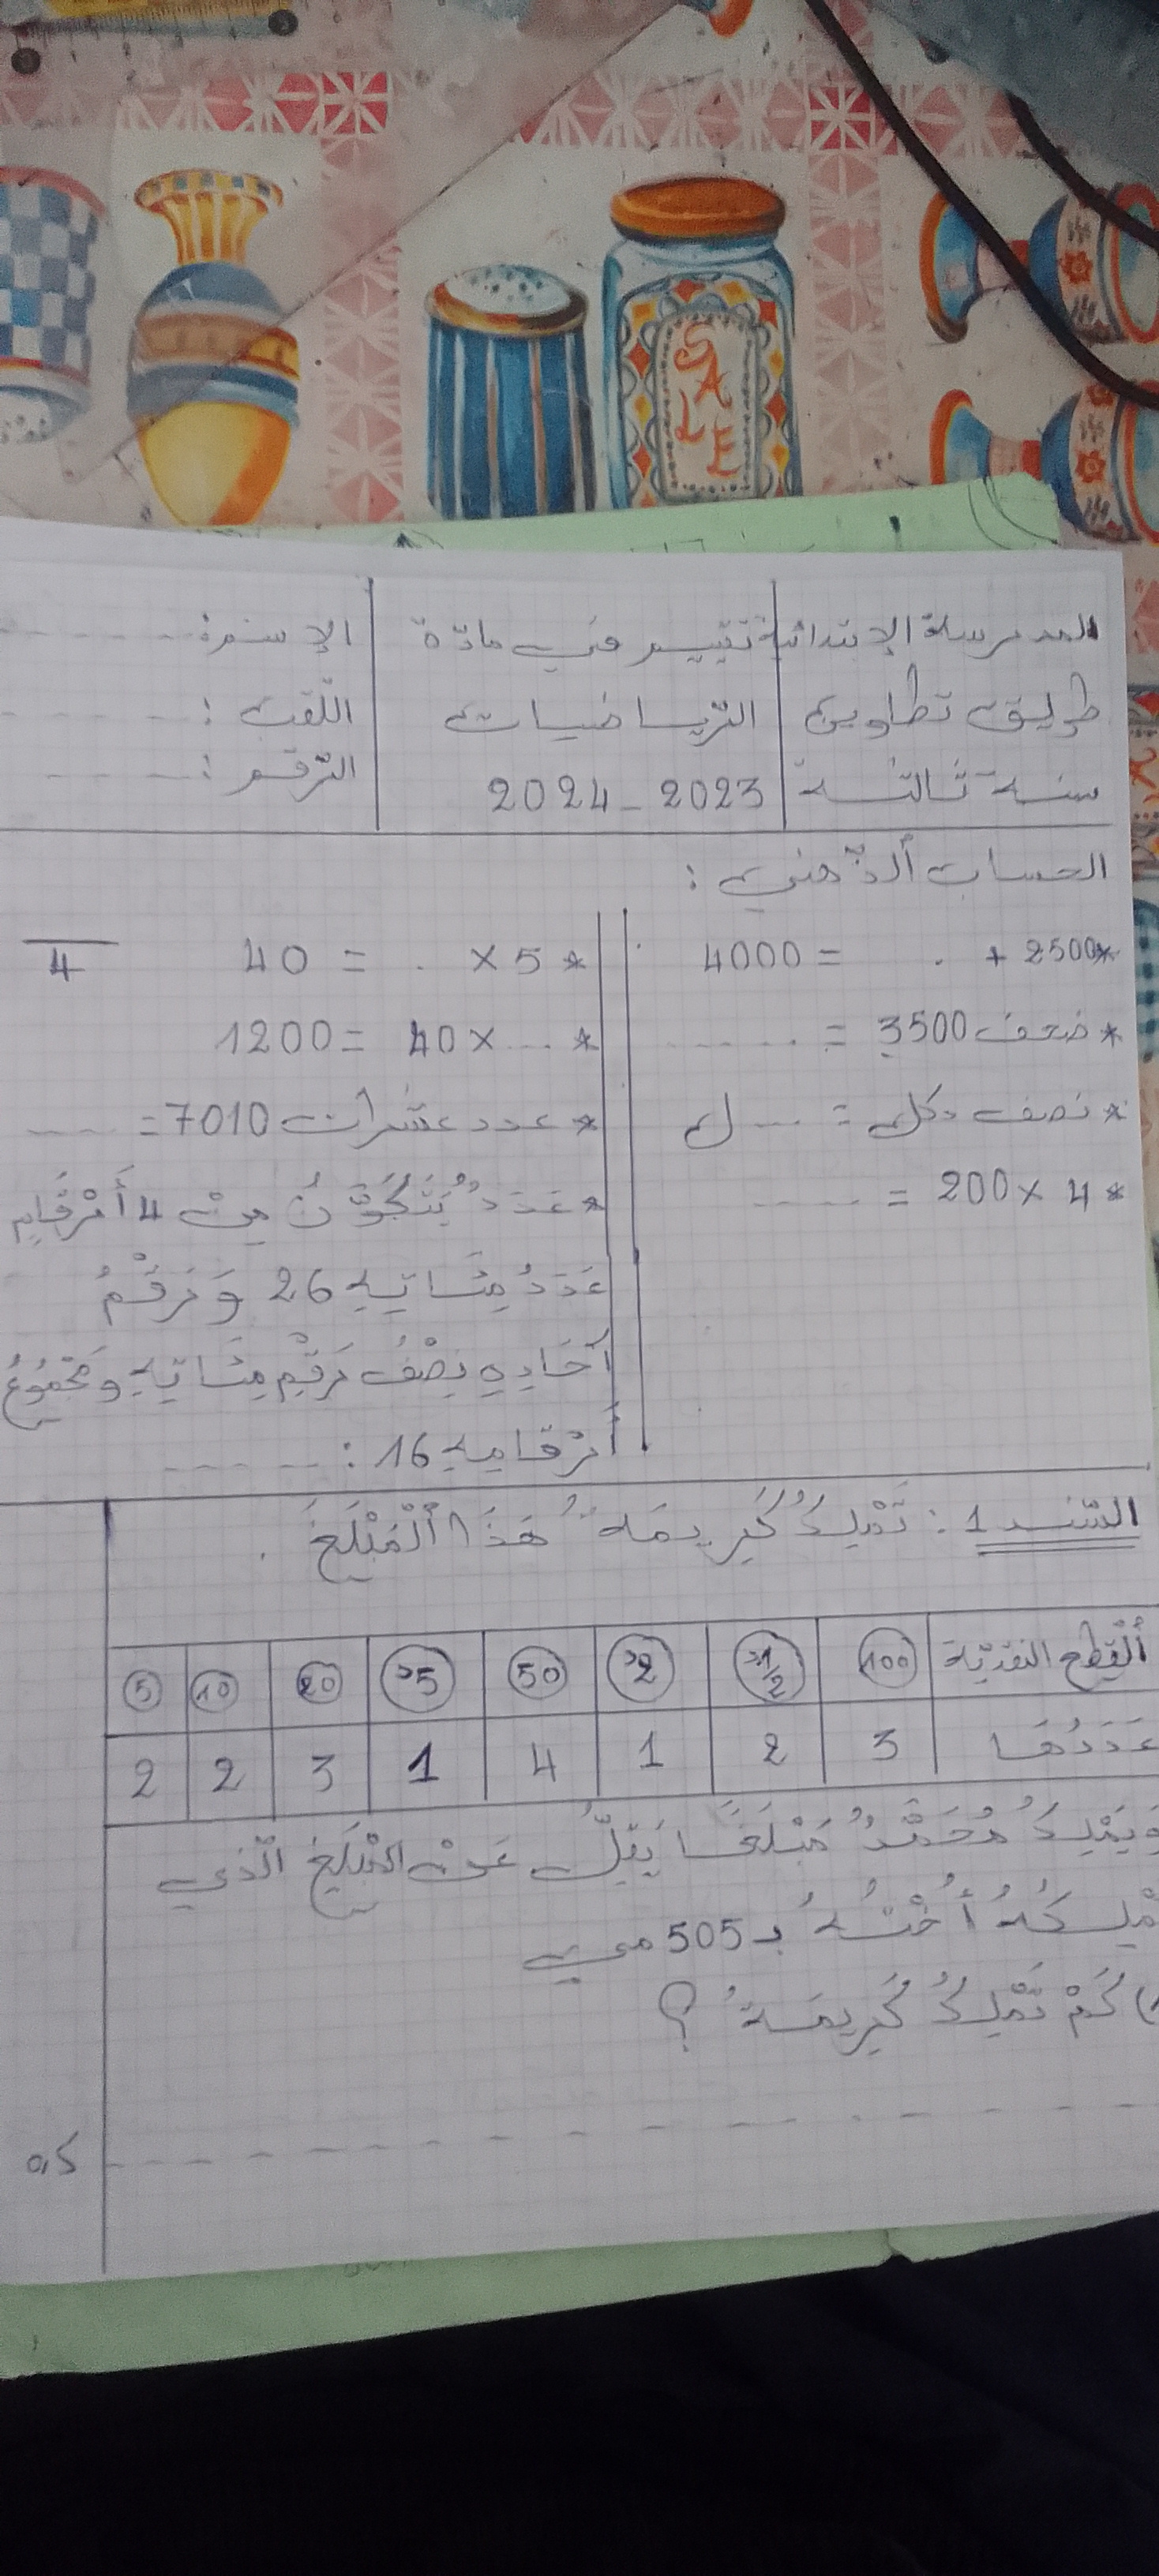 SALE
المدرسة الإبتدائية
طريق تطاوين
سنة ثالثة
تقييم في مادّة
الرّياضيات
2023 - 2024
الإسم:
اللّقب :
الرّقم :
الحساب ألذّهني :
* 2500 + . = 4000
* ضعف 3500 = ......
* نصف دكل = .... ل
* 4 × 200 = ......
* 5 × . = 40
* .... × 40 = 1200
* عدد عشرات 7010 = ....
* عَدَدٌ يَتَكَوَّنُ مِنْ 4 أَرْقَامٍ
عَدَدُ مِئَاتِهِ 26 وَرَقْمُ
آحَادِهِ نِصْفُ رَقْمِ مِئَاتِهِ وَمَجْمُوعُ
أَرْقَامِهِ 16 : ......
4
السّند 1 : تَمْلِكُ كَرِيمَةُ هَذَا ٱلْمَبْلَغَ .
ٱلْقِطَع النقديّة 100 1/2د 2د 50 5د 20 10 5
عَدَدُهَا 3 2 1 4 1 3 2 2
وَيَمْلِكُ مُحَمَّدٌ مَبْلَغًا يَقِلُّ عَنْ المَبْلَغِ الّذي
تَمْلِكُهُ أُخْتُهُ بـ 505 مي
1) كَمْ تَمْلِكُ كَرِيمَةُ ؟
0,5